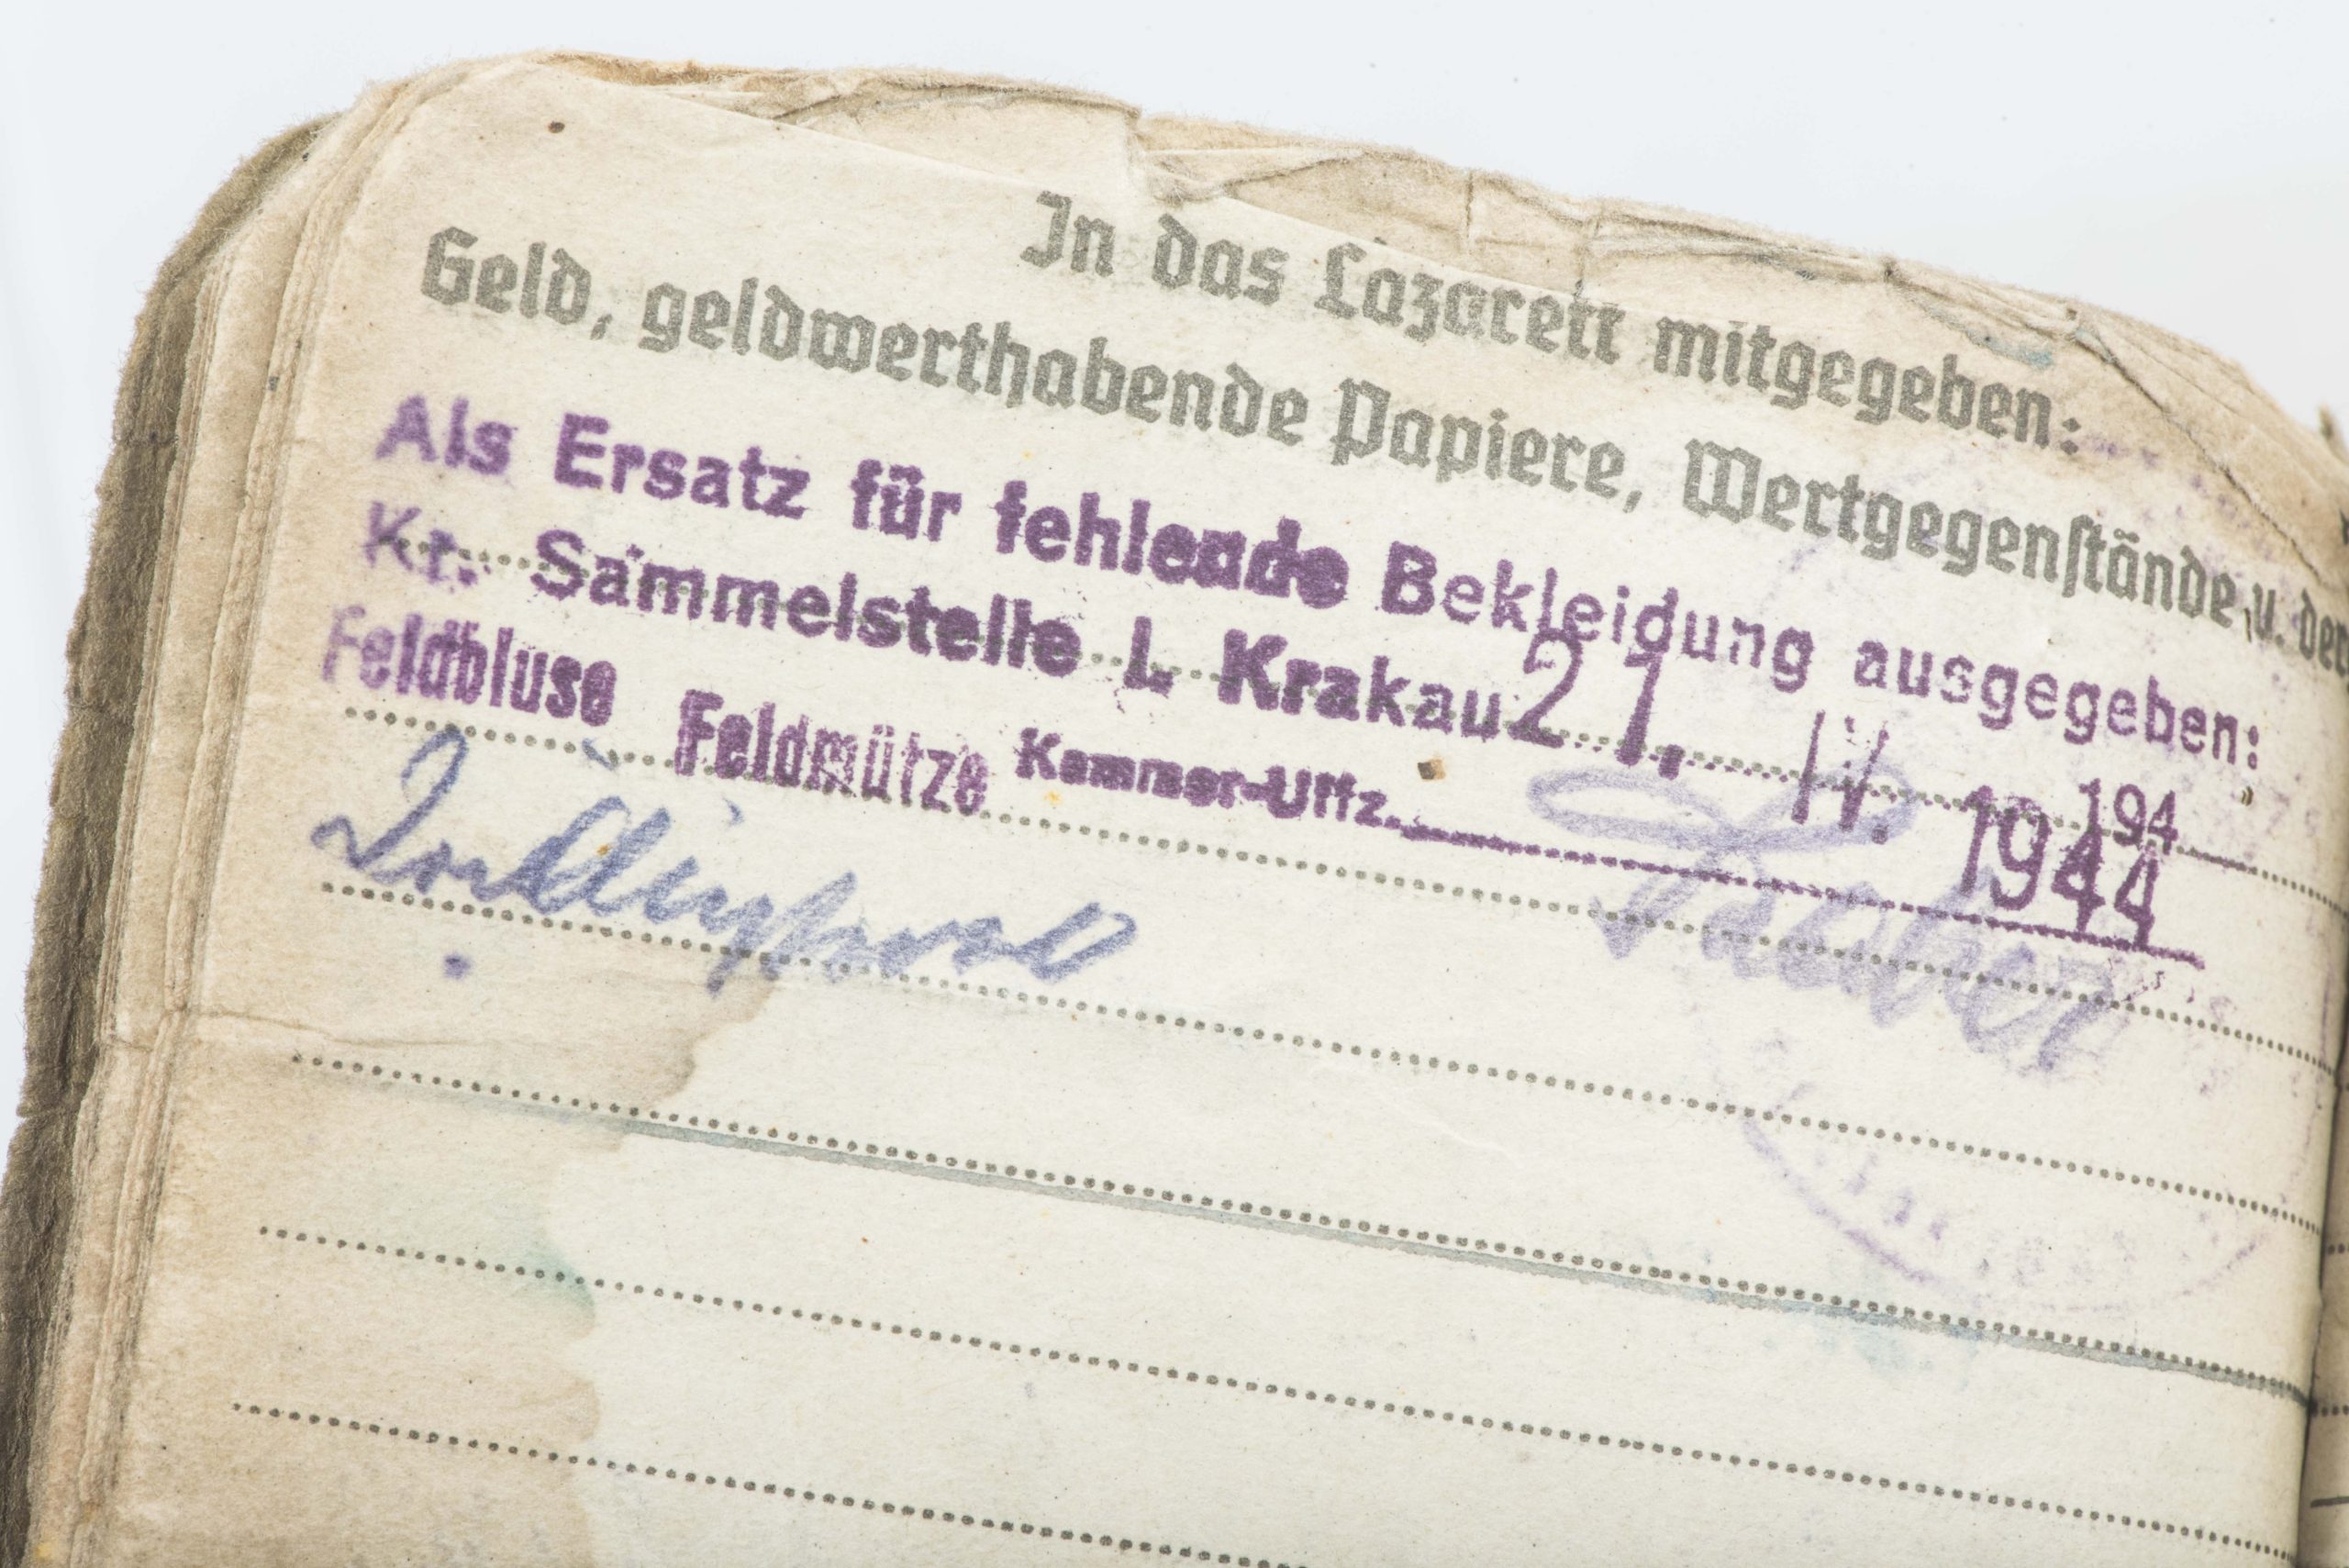 In das Lazarett mitgegeben:
Geld, geldwerthabende Papiere, Wertgegenstände u. der
Als Ersatz für fehlende Bekleidung ausgegeben:
Kr. Sammelstelle L Krakau 21. IV. 1944 194
Feldbluse Feldmütze Kammer-Uffz.